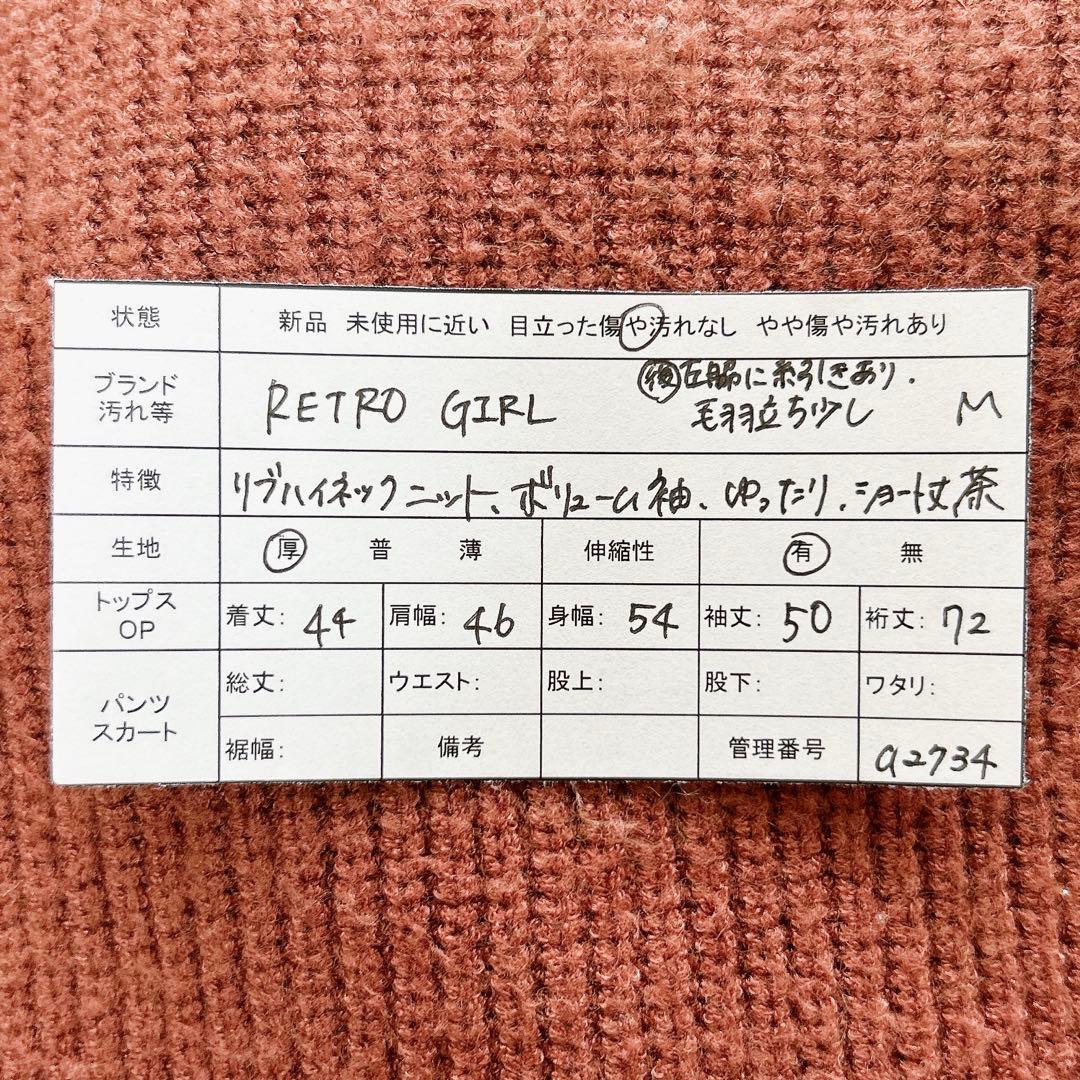 状態 新品 未使用に近い 目立った傷や汚れなし やや傷や汚れあり
ブランド
汚れ等
RETRO GIRL
左脇に糸引きあり.
毛羽立ち少し
M
特徴 リブハイネックニット、ボリューム袖、ゆったり、ショート丈 茶
生地 厚 普 薄 伸縮性 有 無
トップス
OP
着丈: 44 肩幅: 46 身幅: 54 袖丈: 50 裄丈: 72
パンツ
スカート
総丈: ウエスト: 股上: 股下: ワタリ:
裾幅: 備考 管理番号 a2734